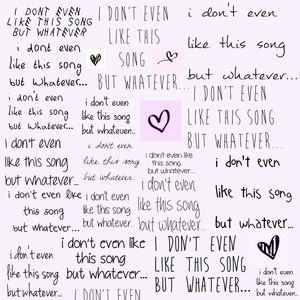 I DONT EVEN
LIKE THIS SONG
BUT WHATEVER
I DON'T EVEN
LIKE THIS
SONG
BUT WHATEVER...
i don't even
like this song
but whatever...
i dont even
like this song
but whatever...
i don't even
like this song
but whatever...
i don't even
like this song
but whatever...
I DON'T EVEN
LIKE THIS
SONG
BUT WHATEVER...
i don't even
like this song
but whatever...
i dont even
like this song
but whatever...
i don't even like
this song
but whatever...
i don't even
like this song
but whatever...
i don't even like
this song
but whatever...
i don't even
like this song
but whatever...
i don't even
like this song
but whatever...
i don't even like
this song
but whatever...
I DON'T EVEN
LIKE THIS SONG
BUT WHATEVER...
i don't even
like this song
but whatever...
i don't even
like this song
but whatever...
I DON'T EVEN